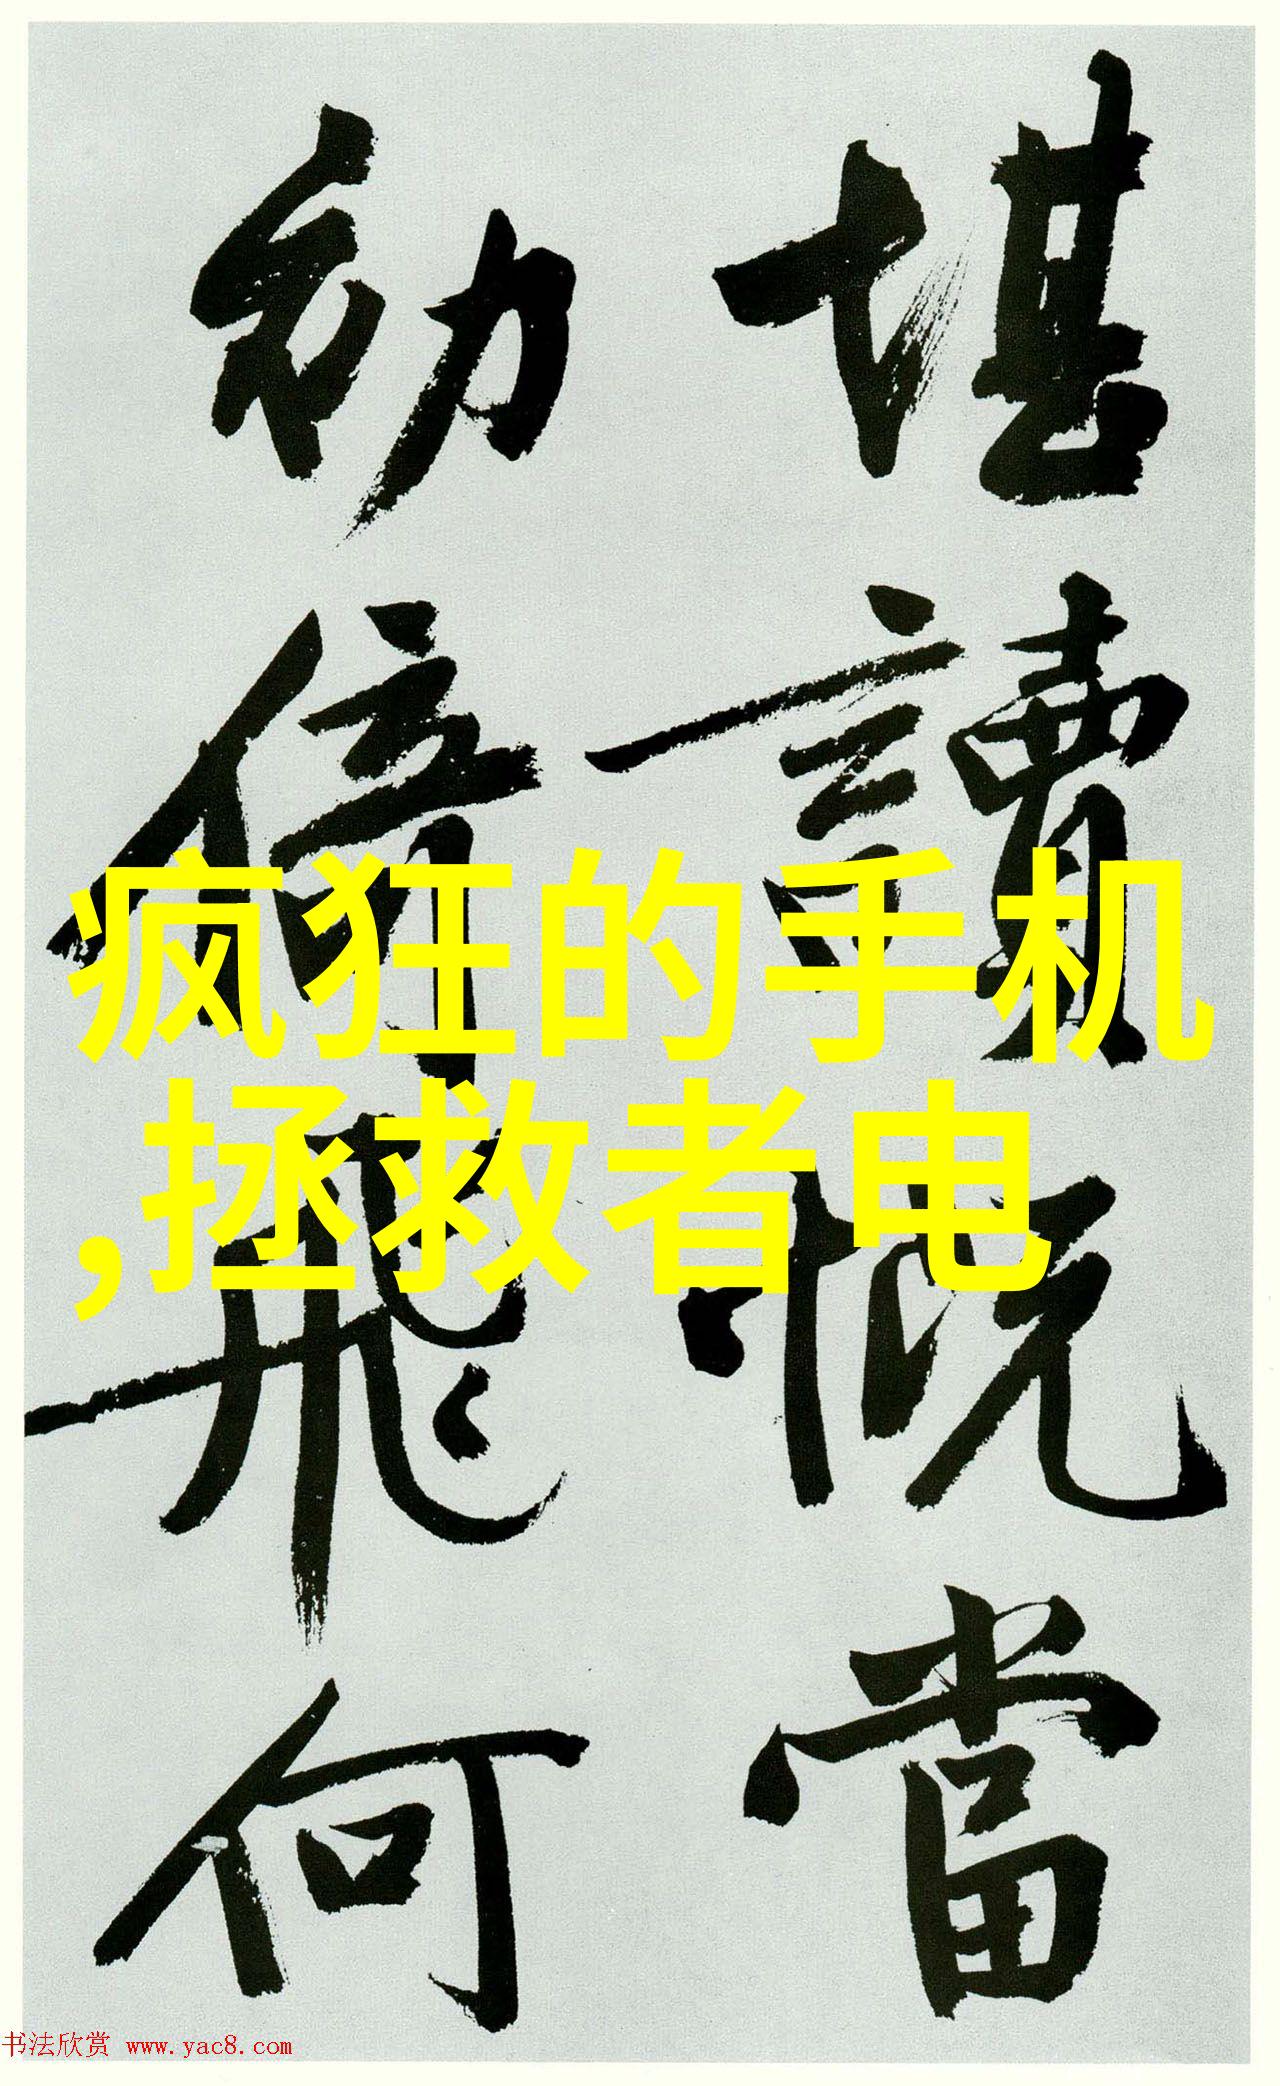 堪讀慨當
幼倚飛何
疯狂的手机
,拯救者电
书法欣赏 www.yac8.com